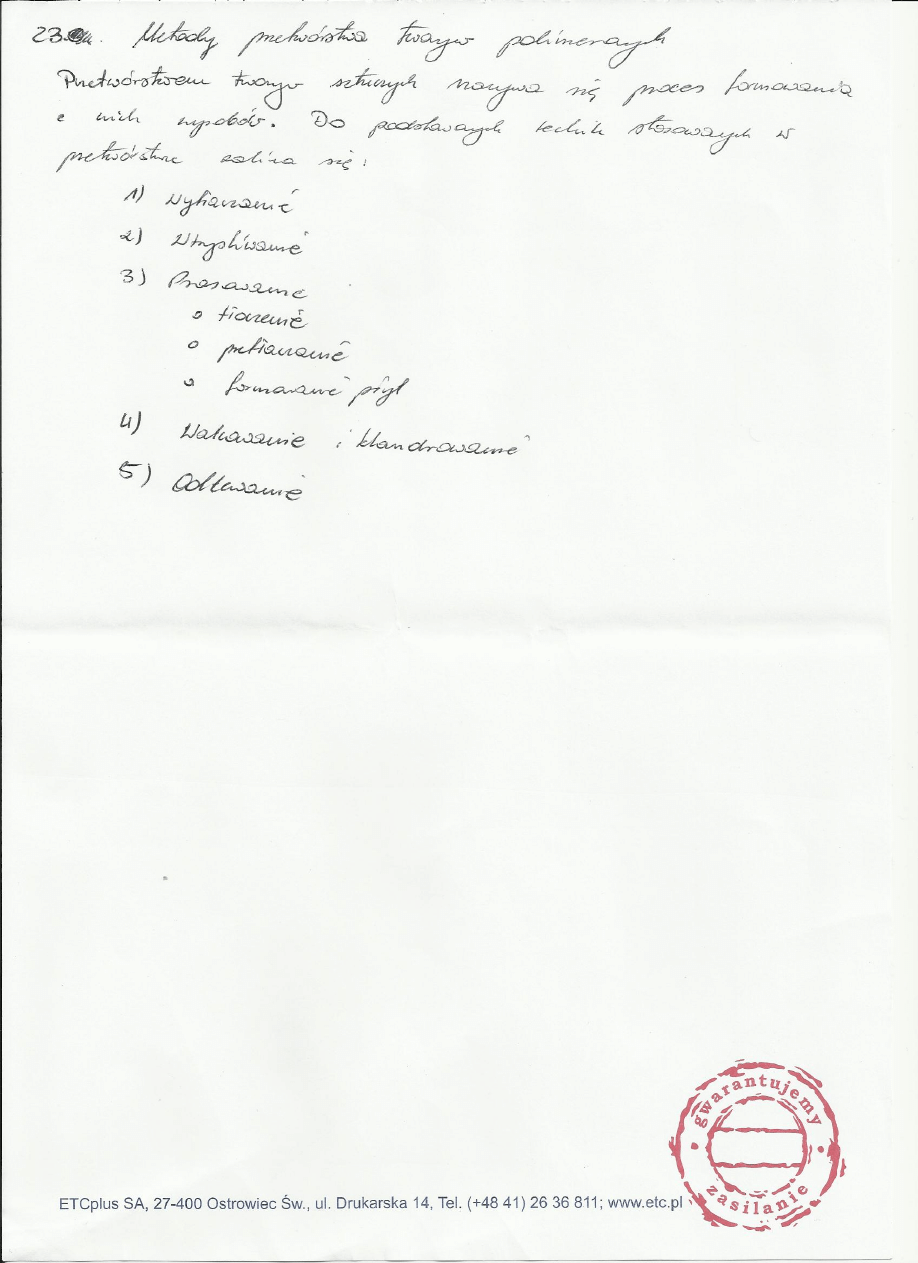 23. Metody przetwórstwa tworzyw polimerowych
Przetwórstwem tworzyw sztucznych nazywa się proces formowania
z nich wyrobów. Do podstawowych technik stosowanych w
przetwórstwie zalicza się:
1) Wytłaczanie
2) Wtryskiwanie
3) Prasowanie
o tłoczenie
o przetłaczanie
o formowanie płyt
4) Walcowanie i kalandrowanie
5) Odlewanie
gwarantujemy
zasilanie
ETCplus SA, 27-400 Ostrowiec Św., ul. Drukarska 14, Tel. (+48 41) 26 36 811; www.etc.pl